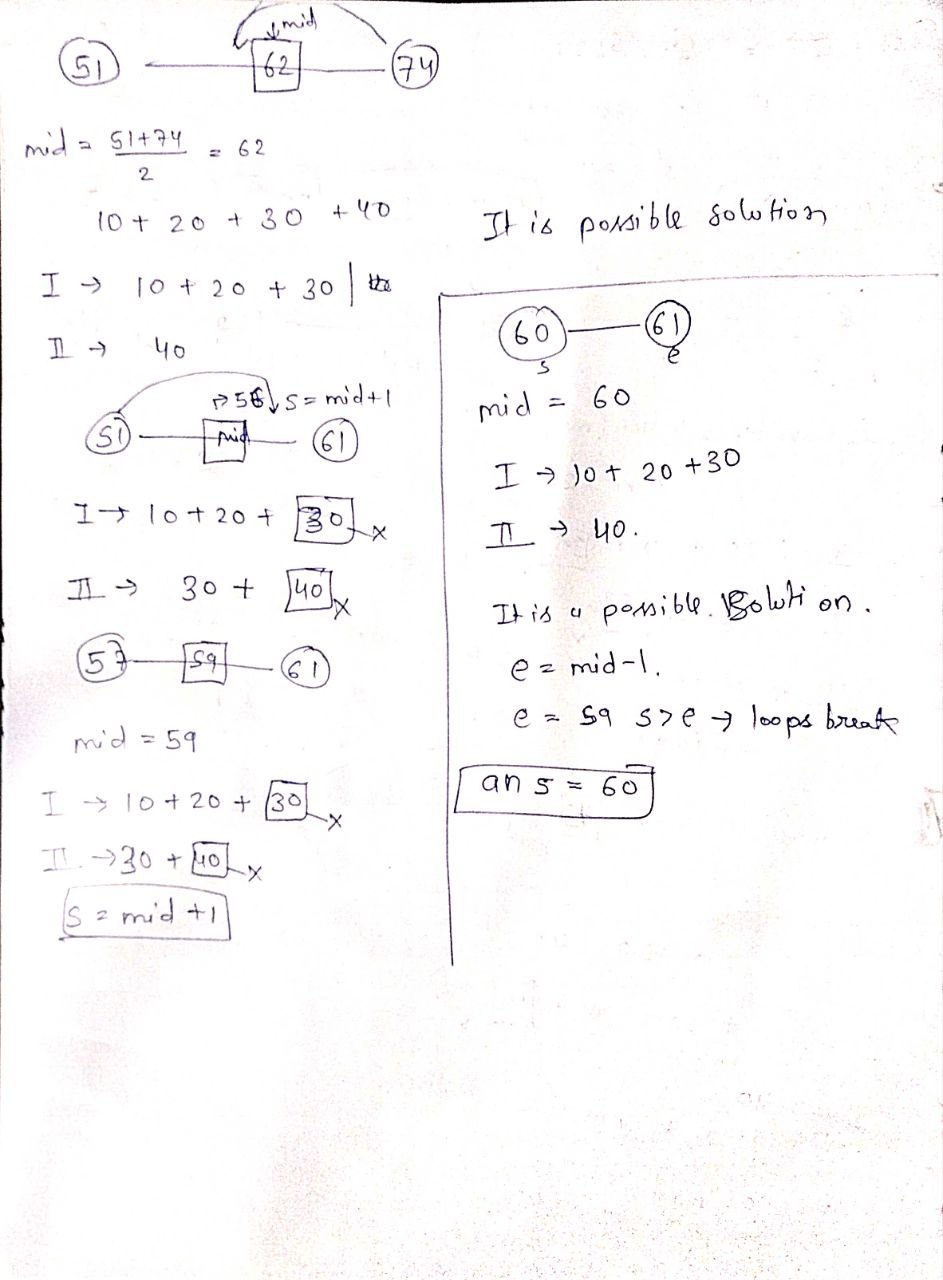 ↓ mid
51 62 74
mid = 51+74 / 2 = 62
10 + 20 + 30 + 40
I → 10 + 20 + 30 |
II → 40
→ 56 ↓ s = mid+1
51 mid 61
I → 10 + 20 + 30 x
II → 30 + 40 x
57 59 61
mid = 59
I → 10 + 20 + 30 x
II. → 30 + 40 x
s = mid +1
It is possible solution
60 61
s e
mid = 60
I → 10 + 20 +30
II → 40.
It is a possible. Solution.
e = mid-1.
e = 59 s>e → loops break
ans = 60